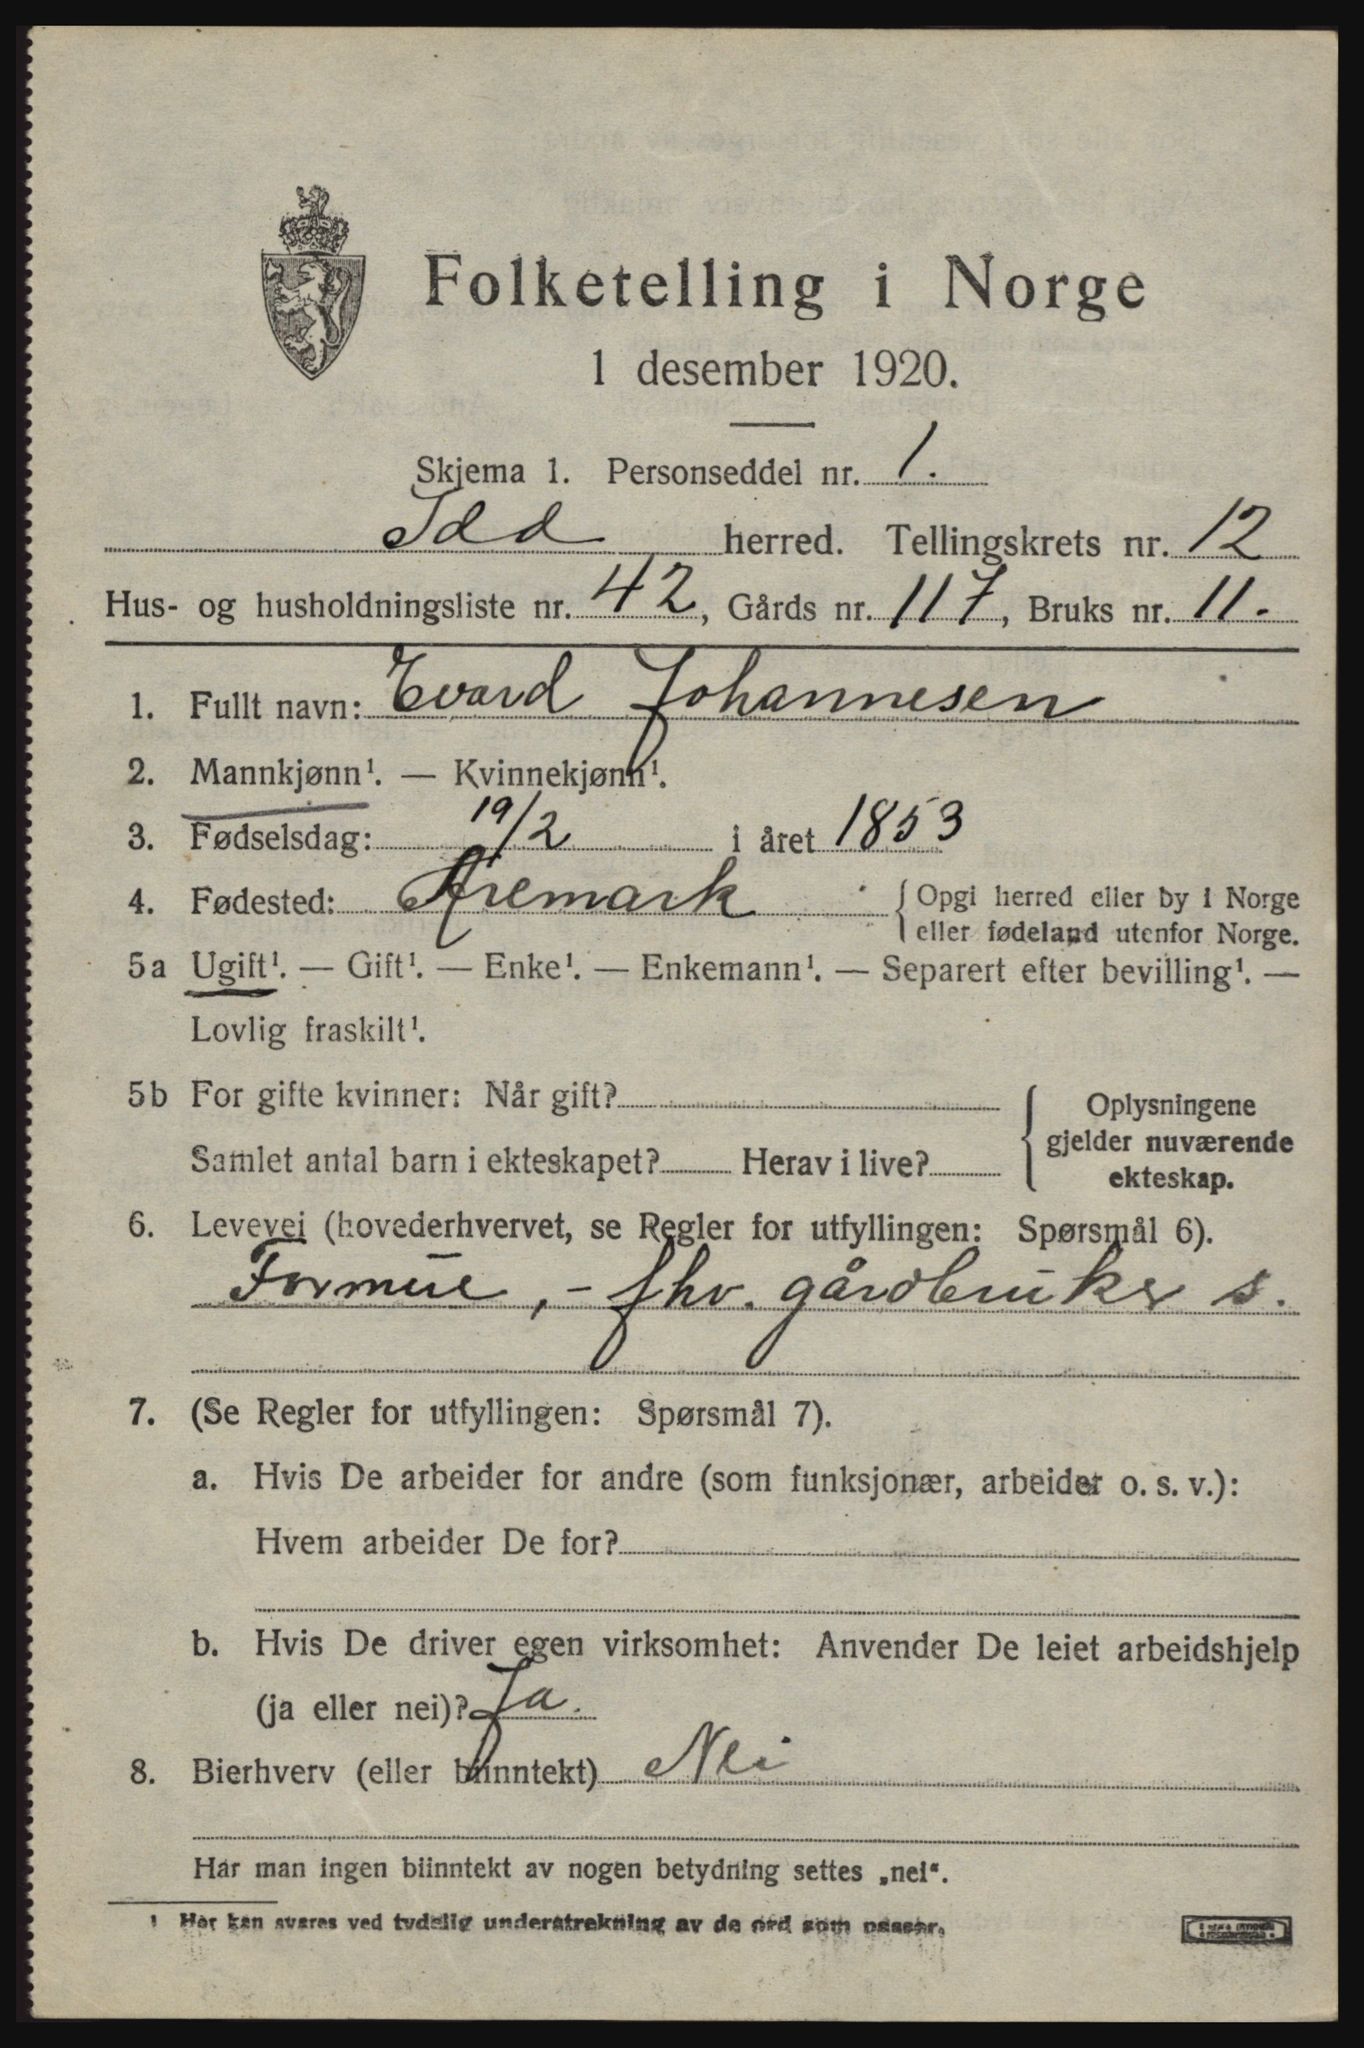 Folketelling i Norge
1 desember 1920.
Skjema 1. Personseddel nr. 1.
Idd herred. Tellingskrets nr. 12
Hus- og husholdningsliste nr. 42, Gårds nr. 117, Bruks nr. 11.
1. Fullt navn: Evard Johannesen
2. Mannkjønn¹. — Kvinnekjønn¹.
3. Fødselsdag: 19/2 i året 1853
4. Fødested: Aremark { Opgi herred eller by i Norge
eller fødeland utenfor Norge.
5a Ugift¹. — Gift¹. — Enke¹. — Enkemann¹. — Separert efter bevilling¹. —
Lovlig fraskilt¹.
5b For gifte kvinner: Når gift?
Samlet antal barn i ekteskapet? Herav i live?
{ Oplysningene
gjelder nuværende
ekteskap.
6. Levevei (hovederhvervet, se Regler for utfyllingen: Spørsmål 6).
Formue, - fhv. gårdbruker s.
7. (Se Regler for utfyllingen: Spørsmål 7).
a. Hvis De arbeider for andre (som funksjonær, arbeider o. s. v.):
Hvem arbeider De for?
b. Hvis De driver egen virksomhet: Anvender De leiet arbeidshjelp
(ja eller nei)? Ja.
8. Bierhverv (eller biinntekt) Nei
Har man ingen biinntekt av nogen betydning settes „nei“.
¹ Her kan svares ved tydelig understrekning av de ord som passer.